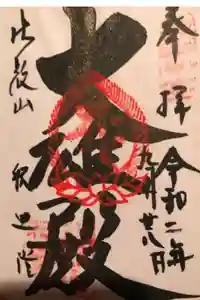 奉拝 令和二年
九月廿八日
大雄殿
比叡山 釈迦堂